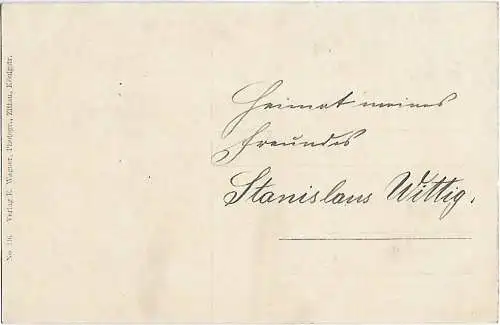 Heimat meines
Freundes
Stanislaus Wittig.
No. 19. Verlag R. Wagner, Photogr., Zittau, Königstr.